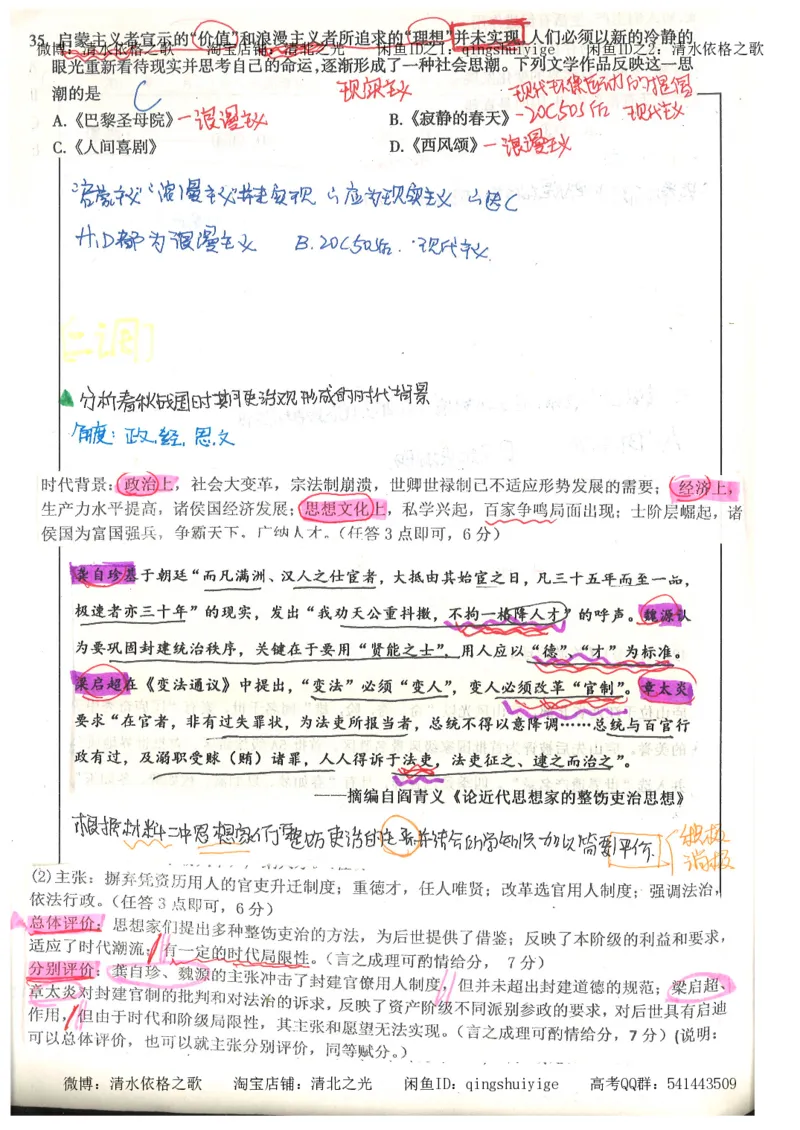 35. 启蒙主义者宣示的“价值”和浪漫主义者所追求的“理想”并未实现,人们必须以新的冷静的
微博：清水依格之歌 淘宝店铺：清北之光 闲鱼ID之1：qingshuiyige 闲鱼ID之2：清水依格之歌
眼光重新看待现实并思考自己的命运,逐渐形成了一种社会思潮。下列文学作品反映这一思
潮的是 C 现实主义 现代环保运动的提倡
A.《巴黎圣母院》—浪漫主义 B.《寂静的春天》-20C50S后 现代主义
C.《人间喜剧》 D.《西风颂》—浪漫主义
启蒙主义 浪漫主义 并未实现 应为现实主义 C
A、D都为浪漫主义 B.20C50后·现代主义
[二调]
分析春秋战国时期吏治观形成的时代背景
角度：政.经.思.文
时代背景：政治上，社会大变革，宗法制崩溃，世卿世禄制已不适应形势发展的需要；经济上，
生产力水平提高，诸侯国经济发展；思想文化上，私学兴起，百家争鸣局面出现；士阶层崛起，诸
侯国为富国强兵，争霸天下，广纳人才。（任答3点即可，6分）
龚自珍基于朝廷“而凡满洲、汉人之仕宦者，大抵由其始宦之日，凡三十五年而至一品，
极速者亦三十年”的现实，发出“我劝天公重抖擞，不拘一格降人才”的呼声。魏源认
为要巩固封建统治秩序，关键在于要用“贤能之士”，用人应以“德”、“才”为标准。
梁启超在《变法通议》中提出，“变法”必须“变人”，变人必须改革“官制”。章太炎
要求“在官者，非有过失罪状，为法吏所报当者，总统不得以意降调……总统与百官行
政有过，及溺职受赇（贿）诸罪，人人得诉于法吏，法吏征之、逮之而治之”。
——摘编自阎青义《论近代思想家的整饬吏治思想》
根据材料二中思想家们整饬吏治的主张并结合所学知识加以简要评价. 积极
消极
(2)主张：摒弃凭资历用人的官吏升迁制度；重德才，任人唯贤；改革选官用人制度；强调法治，
依法行政。（任答3点即可，6分）
总体评价：思想家们提出多种整饬吏治的方法，为后世提供了借鉴；反映了本阶级的利益和要求，
适应了时代潮流；有一定的时代局限性。（言之成理可酌情给分， 7分）
分别评价：龚自珍、魏源的主张冲击了封建官僚用人制度，但并未超出封建道德的规范；梁启超、
章太炎对封建官制的批判和对法治的诉求，反映了资产阶级不同派别参政的要求，对后世具有启迪
作用，但由于时代和阶级局限性，其主张和愿望无法实现。（言之成理可酌情给分，7分）(说明：
可以总体评价，也可以就主张分别评价，同等赋分。）
微博：清水依格之歌 淘宝店铺：清北之光 闲鱼ID：qingshuiyige 高考QQ群：541443509